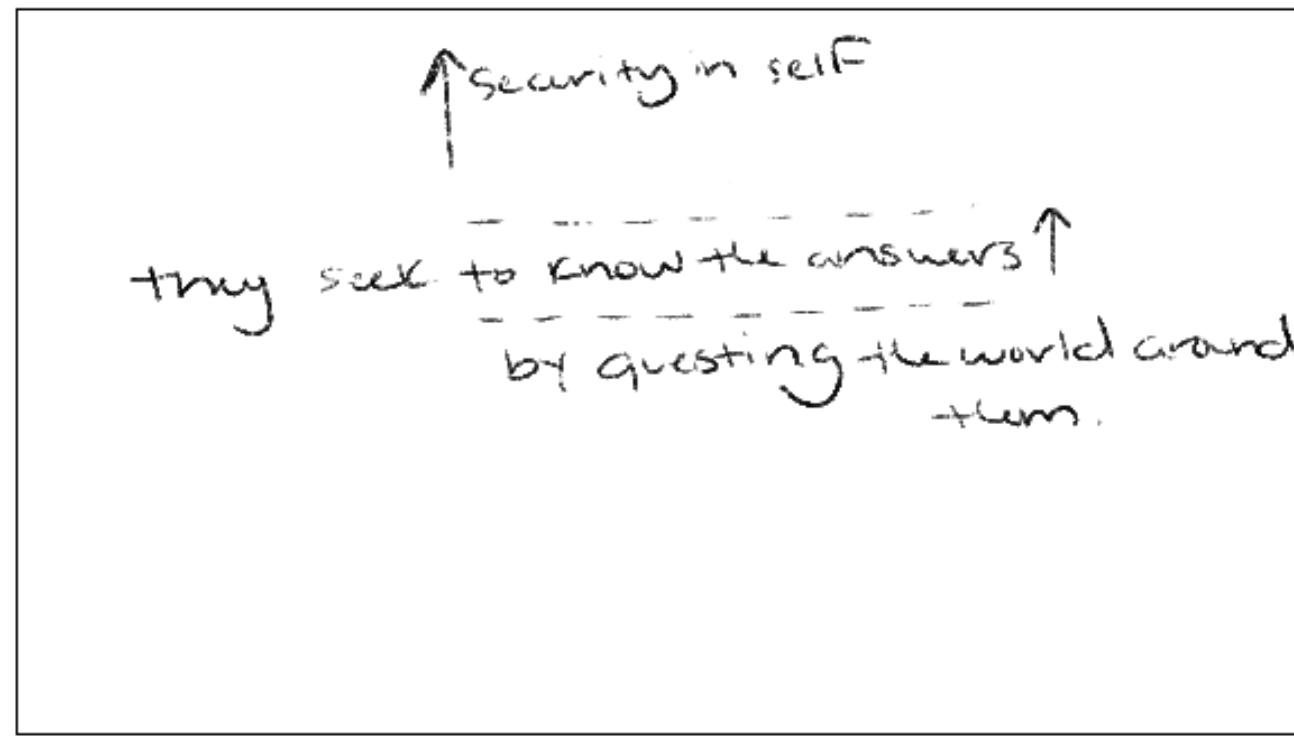 ↑ security in self
they seek to know the answers ↑
by questing the world around
them.